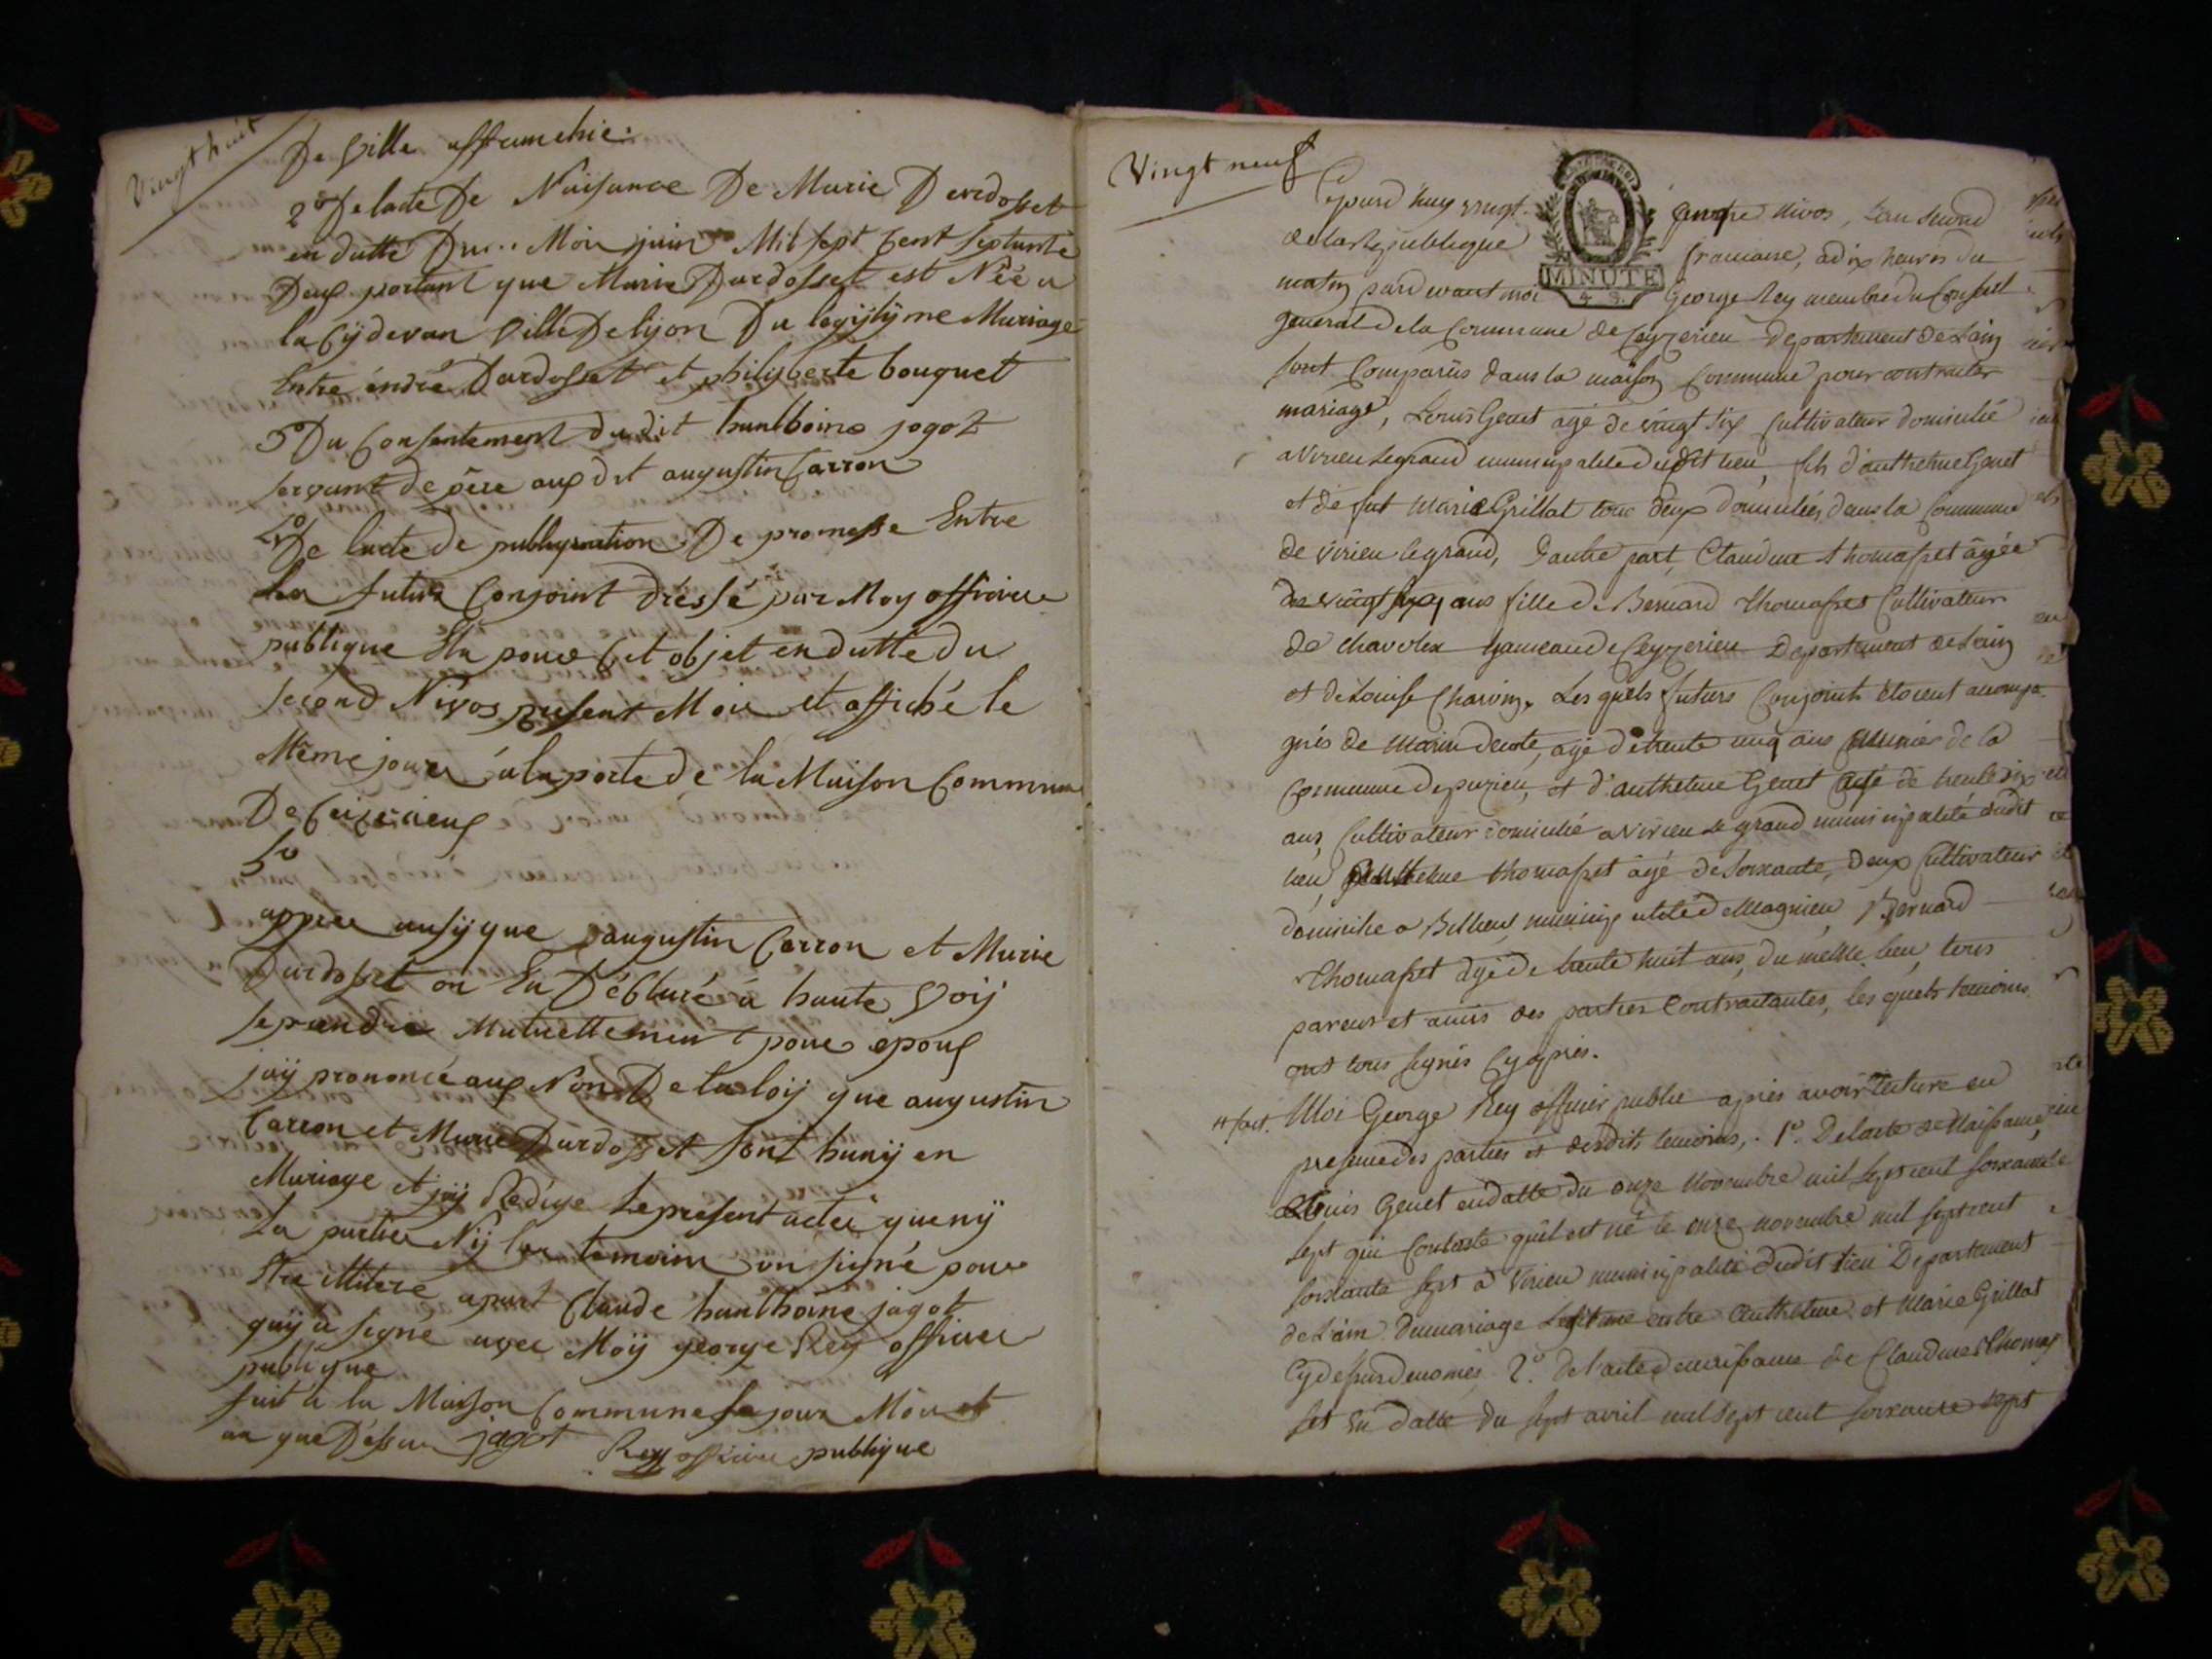 Vingt huit
De Ville affranchie.
2° De lacte De Naisance De Marie Dardosset
en datte Du .. Mois juin Mil sept Cent septante
Deux portant que Marie Dardosset est Néé a
la Cijdevan Ville De lijon Du legijtijme Mariage
Entre éndré Dardosset et philijberte bouquet
3° Du Consentement du dit hanthoine jagot
servant de père aux dit augustin Carron
4° De lacte de publiquation De promesse Entre
les futur Conjoint dréssé par Moy officier
publique Elu pour Cet objet en datte du
second Nivos present Mois et affiché le
Même jour á la porte de la Maison Commune
De Ceizerieux
5°
apprer ansij que augustin Carron et Marie
Dardosset on Eu Déclaré a haute Voij
se prendre Mutuellement pour epoux
jaij prononcé aux Nom De la loij que augustin
Carron et Marie Dardosset sont hunij en
Mariage et jaij Redige Le present acte que nij
La partier Nij les temoins on signé pour
Etre illiteré apart Claude hanthoine jagot
quij a signé avec Moij george Rey officier
publique
fait a la Maison Commune le jour Mois et
an que Déssu jagot Rey officier publique
Vingt neuf
Cejourd'huy vingt MINUTE nivos, L'an second
de la Republique 4. S. francaise, a dix heures du
matin pardevant moi George Rey membre du Conseil
general de la Commune de Ceyzerieu Departement de L'ain
sont Comparûs dans la maison Commune pour contracter
mariage, Louis Genet agé de vingt six Cultivateur domicilié
a Virieu Le grand municipalité dudit lieu, fils d'Anthelme Genet
et de fut Marie Grillat tous deux domiciliés dans la Commune
de Virieu le grand, D'autre part, Claudine Thomasset âgée
de vingt six ans fille de Bernard Thomasset Cultivateur
de Chavolex hameau de Ceyzerieu Departement de L'ain
et de Louise Charvin. Les quels futurs Conjoints étoient accompa
gnés de Marin agé de trente cinq ans de la
Commune de puzieu, et d'anthelme Genet agé de trente six
ans, Cultivateur domicilié a Virieu le grand municipalité dudit
lieu, Anthelme Thomasset âgé de soixante, deux Cultivateur
domicilie a Billieu municipalité de Magnieu, Bernard
Thomasset âgé de trente huit ans, du même lieu, tous
parens et amis des parties Contractantes, les quels temoins
ont tous signés Cy après.
Moi George Rey officier public après avoir lecture en
presence des parties et desdits temoins, . 1°. De lacte de Naissance
Louis Genet en datte du onze Novembre mil sept cent soixante
sept qui Constate qu'il est né le onze novembre mil sept cent
soixante sept à Virieu municipalité dudit Lieu Departement
de L'ain du mariage Legitime entre Anthelme et Marie Grillat
Cy dessus denomés 2°. de l'acte de naissance de Claudine Thomas
set En datte du sept avril mil sept cent soixante sept